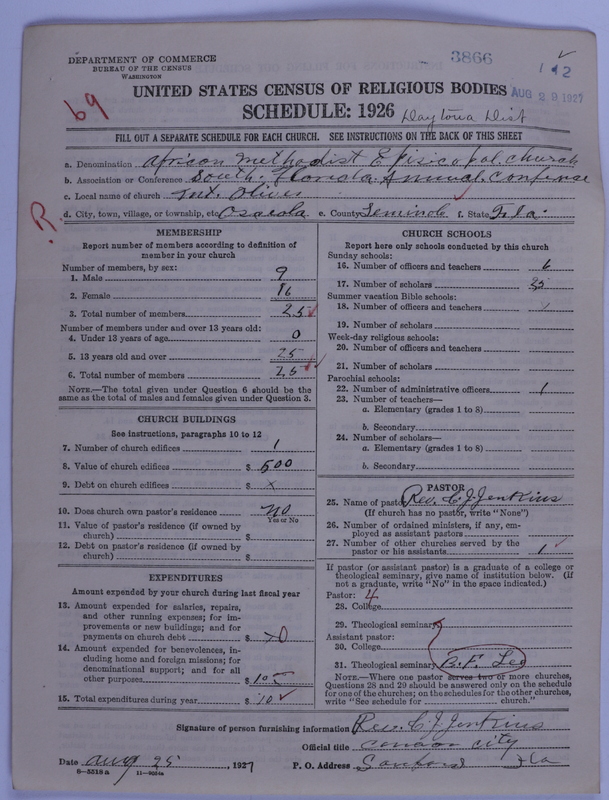 DEPARTMENT OF COMMERCE
BUREAU OF THE CENSUS
WASHINGTON
3866
1 42
UNITED STATES CENSUS OF RELIGIOUS BODIES
AUG 29 1927
69
SCHEDULE: 1926 Daytona Dist
FILL OUT A SEPARATE SCHEDULE FOR EACH CHURCH. SEE INSTRUCTIONS ON THE BACK OF THIS SHEET
a. Denomination African Methodist Episicopal church
b. Association or Conference South Florida Annual Confense
c. Local name of church Mt. Olives
d. City, town, village, or township, etc. Osceola e. County Seminole f. State Fla.
R.
MEMBERSHIP
Report number of members according to definition of
member in your church
Number of members, by sex:
1. Male 9
2. Female 16
3. Total number of members 25
Number of members under and over 13 years old:
4. Under 13 years of age 0
5. 13 years old and over 25
6. Total number of members 25
NOTE.—The total given under Question 6 should be the
same as the total of males and females given under Question 3.
CHURCH BUILDINGS
See instructions, paragraphs 10 to 12
7. Number of church edifices 1
8. Value of church edifices $ 500
9. Debt on church edifices $ x
10. Does church own pastor's residence? No
Yes or No
11. Value of pastor's residence (if owned by
church) $
12. Debt on pastor's residence (if owned by
church) $
EXPENDITURES
Amount expended by your church during last fiscal year
13. Amount expended for salaries, repairs,
and other running expenses; for im-
provements or new buildings; and for
payments on church debt $
14. Amount expended for benevolences, in-
cluding home and foreign missions; for
denominational support; and for all
other purposes $ 105
15. Total expenditures during year $
CHURCH SCHOOLS
Report here only schools conducted by this church
Sunday schools:
16. Number of officers and teachers 6
17. Number of scholars 25
Summer vacation Bible schools:
18. Number of officers and teachers
19. Number of scholars
Week-day religious schools:
20. Number of officers and teachers
21. Number of scholars
Parochial schools:
22. Number of administrative officers 1
23. Number of teachers—
a. Elementary (grades 1 to 8)
b. Secondary
24. Number of scholars—
a. Elementary (grades 1 to 8)
b. Secondary
PASTOR
25. Name of pastor Rev. C J Jenkins
(If church has no pastor, write "None")
26. Number of ordained ministers, if any, em-
ployed as assistant pastors
27. Number of other churches served by the
pastor or his assistants 1
If pastor (or assistant pastor) is a graduate of a college or
theological seminary, give name of institution below. (If
not a graduate, write "No" in the space indicated.)
Pastor: 4
28. College
29. Theological seminary
Assistant pastor:
30. College
31. Theological seminary B. F. Lee
NOTE.—Where one pastor serves two or more churches,
Questions 28 and 29 should be answered only on the schedule
for one of the churches; on the schedules for the other churches,
write "See schedule for church."
Signature of person furnishing information Rev. C J Jenkins
Official title city
Date Aug 25, 1927 P. O. Address Sanford Fla
8-5518 a 11-9034a